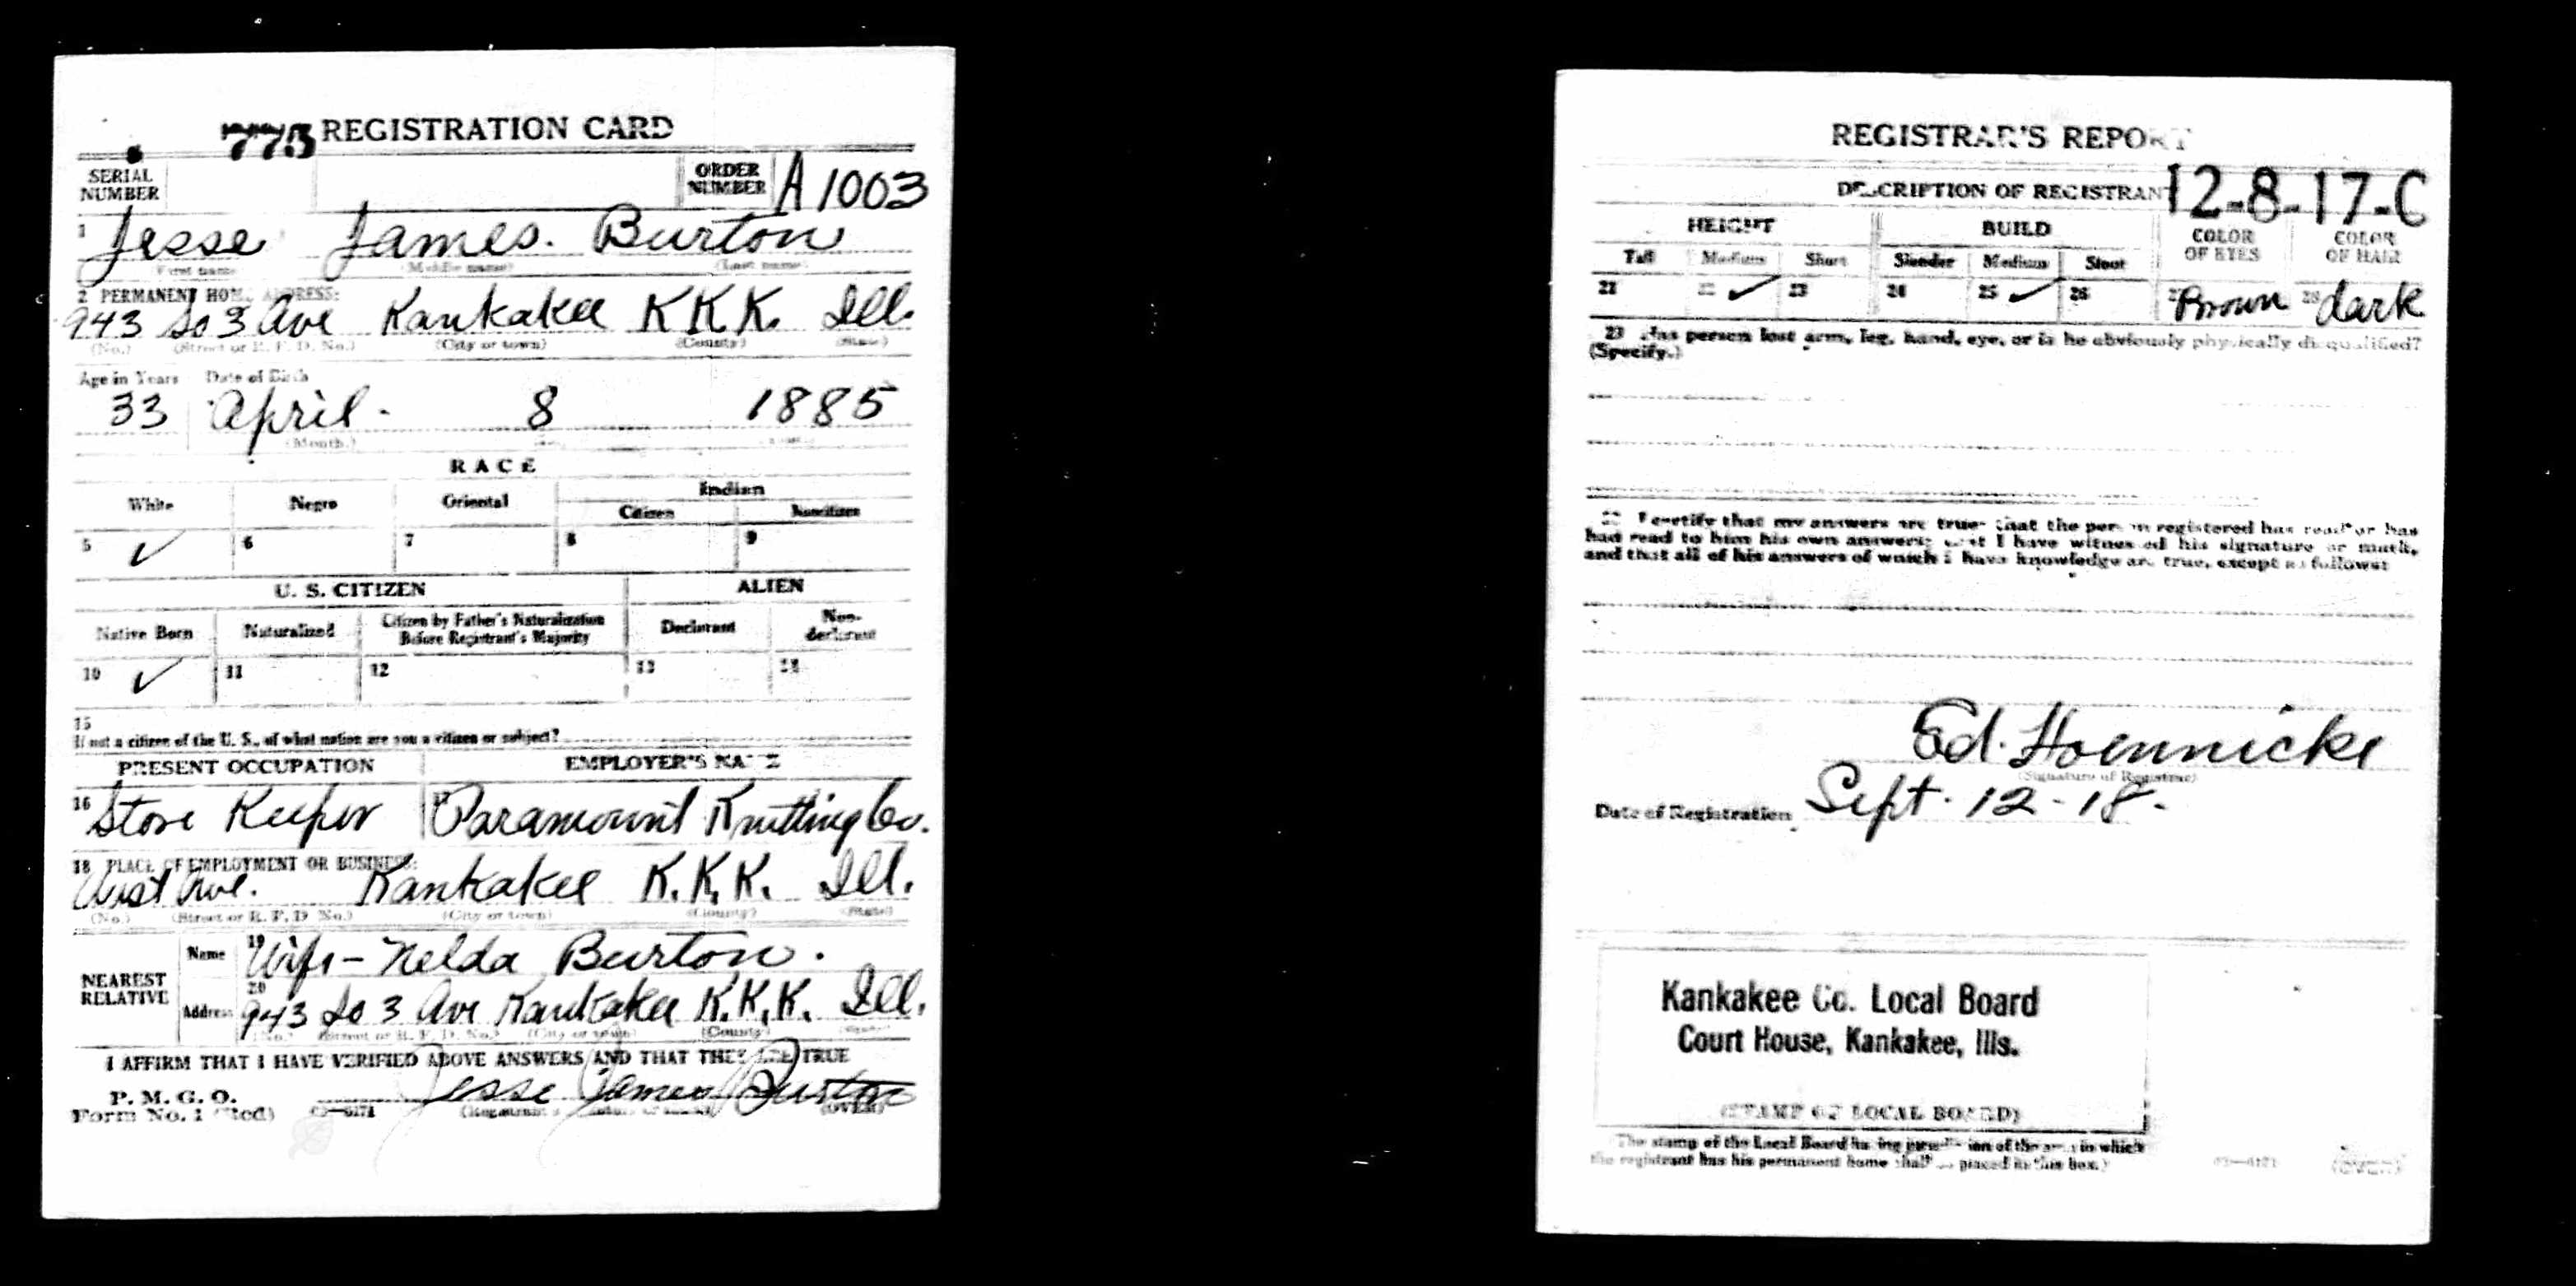 775 REGISTRATION CARD
SERIAL NUMBER ORDER NUMBER A 1003
1 Jesse James. Burton
First name (Middle name) (Last name)
2 PERMANENT HOME ADDRESS:
943 So 3 Ave Kankakee K.K.K. Ill.
(No.) (Street or R. F. D. No.) (City or town) (County) (State)
Age in Years Date of Birth
33 April. 8 1885
(Month.)
RACE
White Negro Oriental Indian
Citizen Noncitizen
5 ✓ 6 7 8 9
U. S. CITIZEN ALIEN
Native Born Naturalized Citizen by Father's Naturalization Before Registrant's Majority Declarant Non-declarant
10 ✓ 11 12 13 14
15
If not a citizen of the U. S., of what nation are you a citizen or subject?
PRESENT OCCUPATION EMPLOYER'S NAME
16 Store Keeper 17 Paramount Knitting Co.
18 PLACE OF EMPLOYMENT OR BUSINESS:
West Ave. Kankakee K.K.K. Ill.
(No.) (Street or R. F. D No.) (City or town) (County) (State)
NEAREST RELATIVE
Name 19 Wife - Nelda Burton.
Address 20 943 So 3 Ave Kankakee K.K.K. Ill.
(No.) (Street or R. F. D. No.) (City or town) (County) (State)
I AFFIRM THAT I HAVE VERIFIED ABOVE ANSWERS AND THAT THEY ARE TRUE
P. M. G. O.
Form No. 1 (Red) 03—6171 Jesse James Burton
(OVER)
REGISTRAR'S REPORT
12-8-17-C
DESCRIPTION OF REGISTRANT
HEIGHT BUILD COLOR OF EYES COLOR OF HAIR
Tall Medium Short Slender Medium Stout
21 22 ✓ 23 24 25 ✓ 26 27 Brown 28 dark
29 Has person lost arm, leg, hand, eye, or is he obviously physically disqualified?
(Specify.)
30 I certify that my answers are true; that the person registered has read or has
had read to him his own answers; that I have witnessed his signature or mark,
and that all of his answers of which I have knowledge are true, except as follows:
Ed. Hoennicke
(Signature of Registrar)
Date of Registration Sept. 12 - 18 -
Kankakee Co. Local Board
Court House, Kankakee, Ills.
(STAMP OF LOCAL BOARD)
The stamp of the Local Board having jurisdiction of the area in which
the registrant has his permanent home shall be placed in this box.)
03—6171 (OVER)